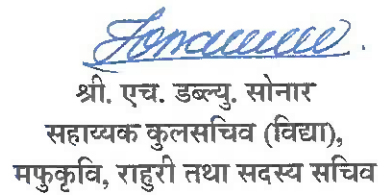 श्री. एच. डब्ल्यु. सोनार
सहाय्यक कुलसचिव (विद्या),
मफुकृवि, राहुरी तथा सदस्य सचिव